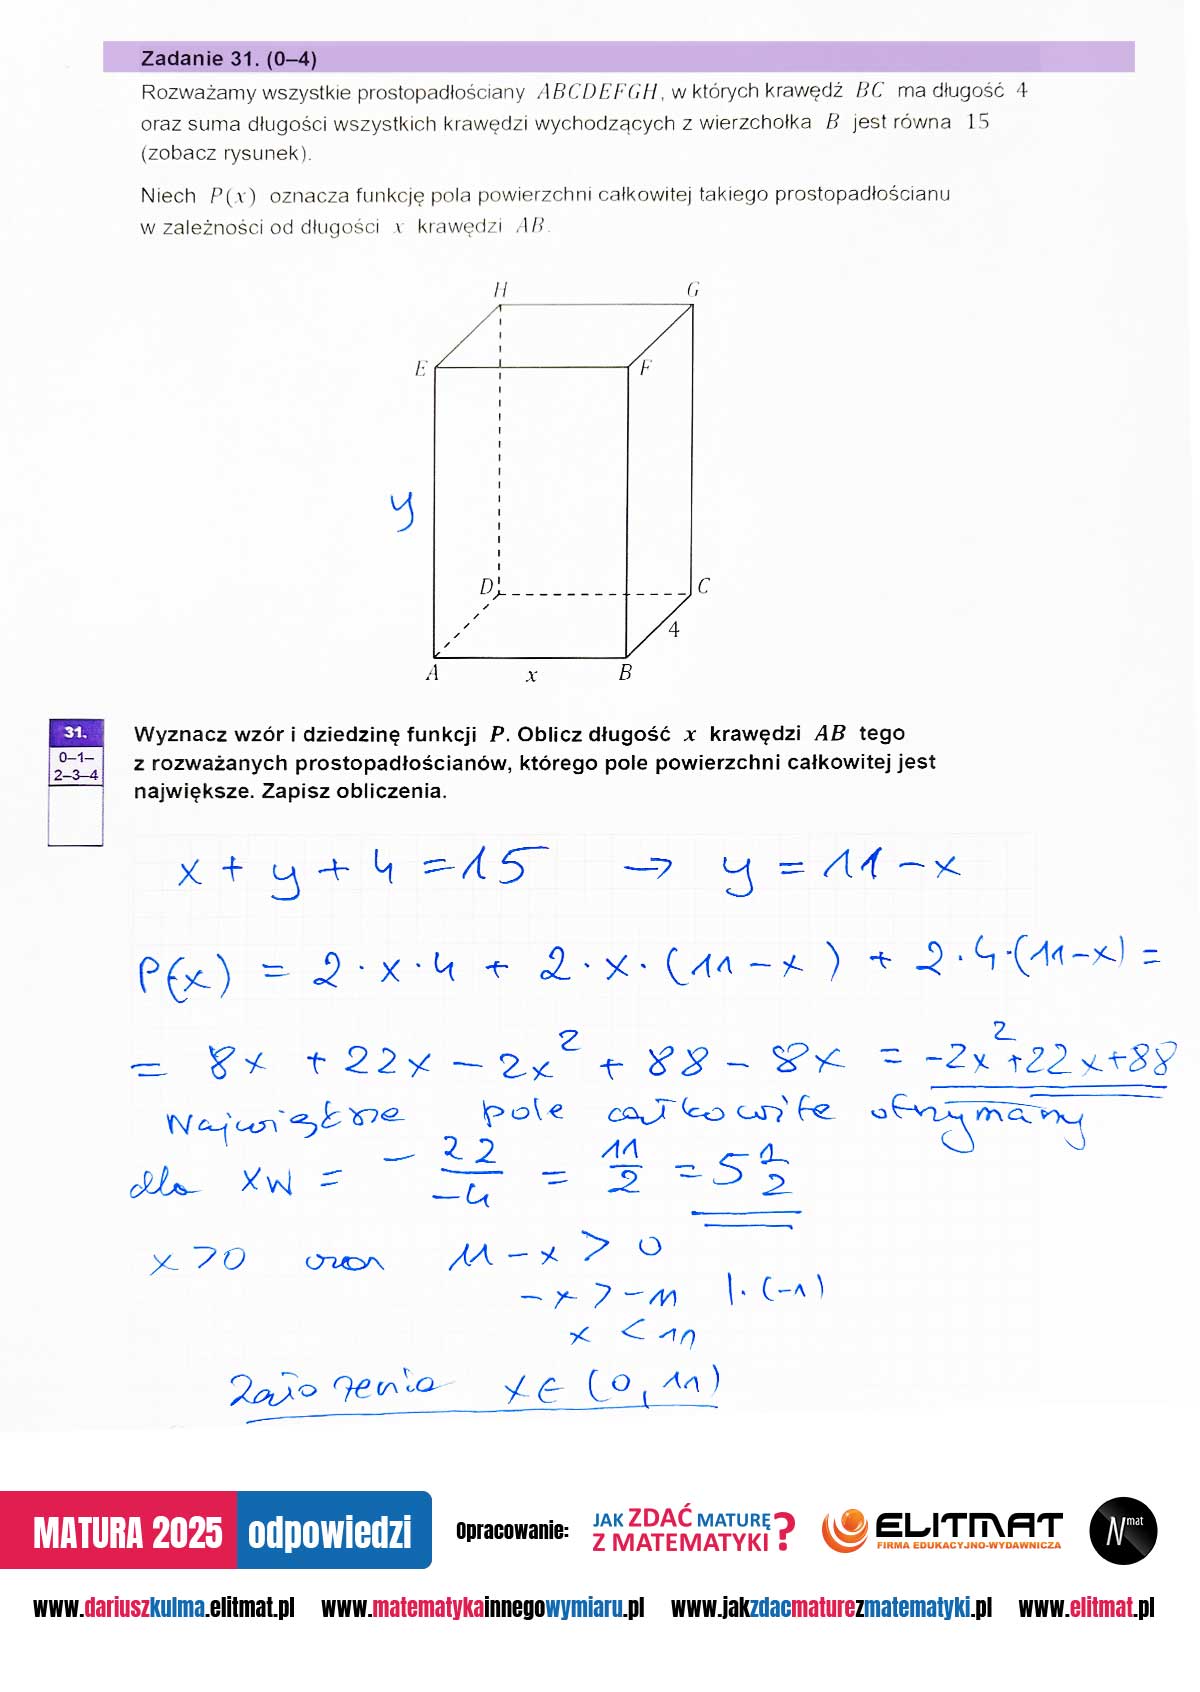 Zadanie 31. (0–4)
Rozważamy wszystkie prostopadłościany ABCDEFGH, w których krawędź BC ma długość 4
oraz suma długości wszystkich krawędzi wychodzących z wierzchołka B jest równa 15
(zobacz rysunek).
Niech P(x) oznacza funkcję pola powierzchni całkowitej takiego prostopadłościanu
w zależności od długości x krawędzi AB.
H G
E F
y
D C
4
A x B
31.
0–1–
2–3–4
Wyznacz wzór i dziedzinę funkcji P. Oblicz długość x krawędzi AB tego
z rozważanych prostopadłościanów, którego pole powierzchni całkowitej jest
największe. Zapisz obliczenia.
x + y + 4 = 15 → y = 11 – x
P(x) = 2 · x · 4 + 2 · x · (11 – x) + 2 · 4 · (11 – x) =
= 8x + 22x – 2x² + 88 – 8x = –2x² + 22x + 88
Największe pole całkowite otrzymamy
dla xw = – 22/–4 = 11/2 = 5 1/2
x > 0 oraz 11 – x > 0
– x > – 11 | · (–1)
x < 11
Założenia x ∈ (0, 11)
MATURA 2025 odpowiedzi
Opracowanie:
JAK ZDAĆ MATURĘ
Z MATEMATYKI?
ELITMAT
FIRMA EDUKACYJNO-WYDAWNICZA
N mat
www.dariuszkulma.elitmat.pl www.matematykainnegowymiaru.pl www.jakzdacmaturezmatematyki.pl www.elitmat.pl